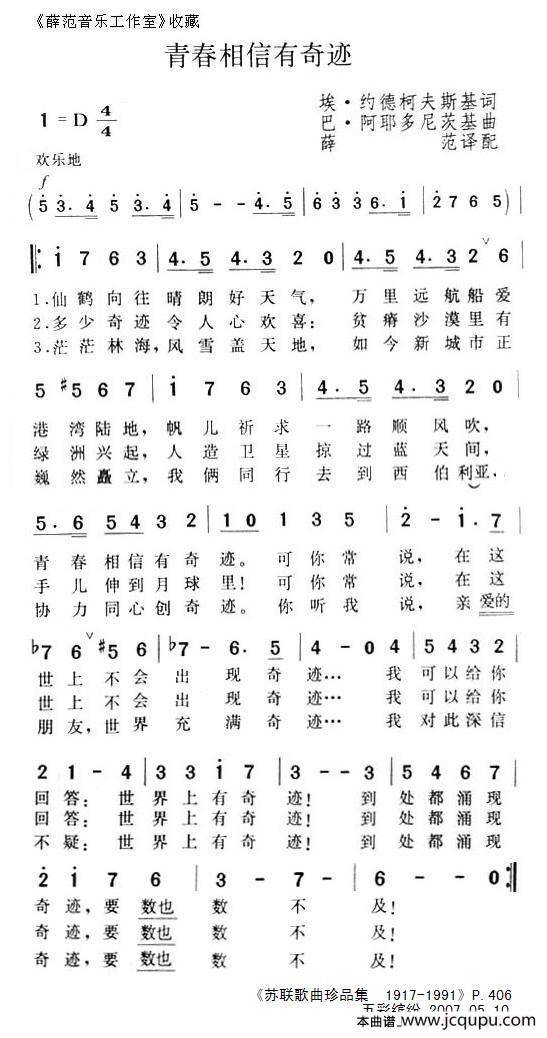 《薛范音乐工作室》收藏
青春相信有奇迹
埃·约德柯夫斯基词
1 = D 4/4
巴·阿耶多尼茨基曲
薛 范译配
欢乐地
f
( 5 3. 4 5 3. 4 | 5 - - 4. 5 | 6 3 3 6. 1 | 2 7 6 5 )
1 7 6 3 | 4. 5 4. 3 2 0 | 4. 5 4. 3 2 ∨ 6
1.仙鹤向往晴朗好天气， 万里远航船爱
2.多少奇迹令人心欢喜： 贫瘠沙漠里有
3.茫茫林海，风雪盖天地， 如今新城市正
5 #5 6 7 | 1 7 6 3 | 4. 5 4. 3 2 0
港湾陆地，帆儿祈求一路顺风吹，
绿洲兴起，人造卫星掠过蓝天间，
巍然矗立，我俩同行去到西伯利亚，
5. 6 5 4 3 2 | 1 0 1 3 5 | 2 - 1. 7
青春相信有奇迹。可你常说，在这
手儿伸到月球里！可你常说，在这
协力同心创奇迹。你听我说，亲爱的
b7 6 ∨ #5 6 | b7 - 6. 5 | 4 - 0 4 | 5 4 3 2
世上不会出现奇迹… 我可以给你
世上不会出现奇迹… 我可以给你
朋友，世界充满奇迹… 我对此深信
2 1 - 4 | 3 3 1 7 | 3 - - 3 | 5 4 6 7
回答：世界上有奇迹！到处都涌现
回答：世界上有奇迹！到处都涌现
不疑：世界上有奇迹！到处都涌现
2 1 7 6 | 3 - 7 - | 6 - - 0
奇迹，要数也数不及！
奇迹，要数也数不及！
奇迹，要数也数不及！
《苏联歌曲珍品集 1917-1991》P.406
五彩缤纷 2007.05.10
本曲谱…www.jcqupu.com